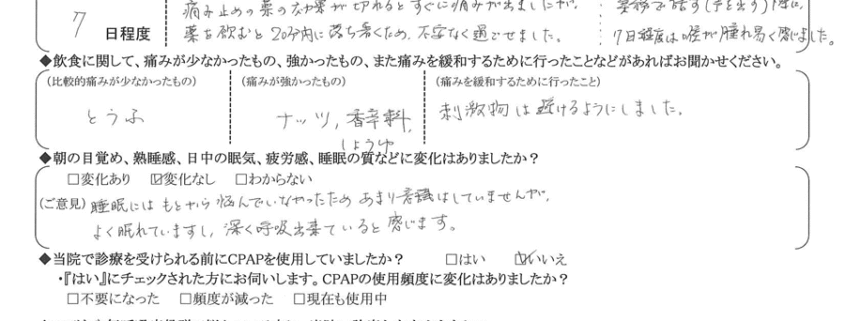 痛み止めの薬の効果が切れるとすぐに痛みが出ましたが、
薬を飲むと20分内に落ち着くため、不安なく過ごせました。
7 日程度
7日程度は喉が腫れ易く感じました。
◆飲食に関して、痛みが少なかったもの、強かったもの、また痛みを緩和するために行ったことなどがあればお聞かせください。
(比較的痛みが少なかったもの) (痛みが強かったもの) (痛みを緩和するために行ったこと)
とうふ ナッツ，香辛料， 刺激物は避けるようにしました。
しょうゆ
◆朝の目覚め、熟睡感、日中の眠気、疲労感、睡眠の質などに変化はありましたか？
□変化あり ☑変化なし □わからない
(ご意見) 睡眠にはもとから悩んでいなかったため あまり意識はしていませんが、
よく眠れていますし，深く呼吸出来ていると感じます。
◆当院で診療を受けられる前にCPAPを使用していましたか？ □はい ☑いいえ
・『はい』にチェックされた方にお伺いします。CPAPの使用頻度に変化はありましたか？
□不要になった □頻度が減った □現在も使用中